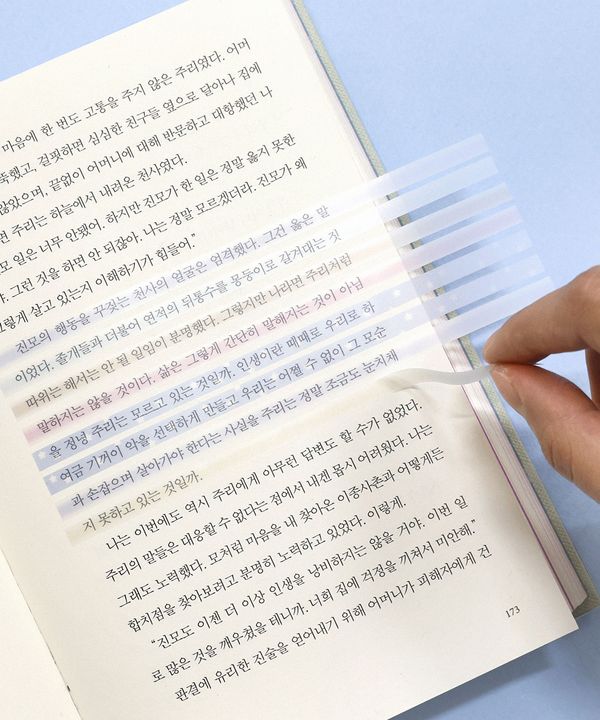 마음에 한 번도 고통을 주지 않은 주리였다. 어머
뚝했고, 걸핏하면 심심한 친구들 옆으로 달아나 집에
않았으며, 끝없이 어머니에 대해 반문하고 대항했던 나
면 주리는 하늘에서 내려온 천사였다.
모 일은 너무 안됐어. 하지만 진모가 한 일은 정말 옳지 못한
야. 그런 짓을 하면 안 되잖아. 나는 정말 모르겠더라. 진모가 왜
그렇게 살고 있는지 이해하기가 힘들어.”
진모의 행동을 꾸짖는 천사의 얼굴은 엄격했다. 그건 옳은 말
이었다. 졸개들과 더불어 연적의 뒤통수를 몽둥이로 갈겨대는 짓
따위는 해서는 안 될 일임이 분명했다. 그렇지만 나라면 주리처럼
말하지는 않을 것이다. 삶은 그렇게 간단히 말해지는 것이 아님
을 정녕 주리는 모르고 있는 것일까. 인생이란 때때로 우리로 하
여금 기꺼이 악을 선택하게 만들고 우리는 어쩔 수 없이 그 모순
과 손잡으며 살아가야 한다는 사실을 주리는 정말 조금도 눈치채
지 못하고 있는 것일까.
나는 이번에도 역시 주리에게 아무런 답변도 할 수가 없었다.
주리의 말들은 대응할 수 없다는 점에서 내겐 몹시 어려웠다. 나는
그래도 노력했다. 모처럼 마음을 내 찾아온 이종사촌과 어떻게든
합치점을 찾아보려고 분명히 노력하고 있었다. 이렇게.
“진모도 이젠 더 이상 인생을 낭비하지는 않을 거야. 이번 일
로 많은 것을 깨우쳤을 테니까. 너희 집에 걱정을 끼쳐서 미안해.”
판결에 유리한 진술을 얻어내기 위해 어머니가 피해자에게 건
173